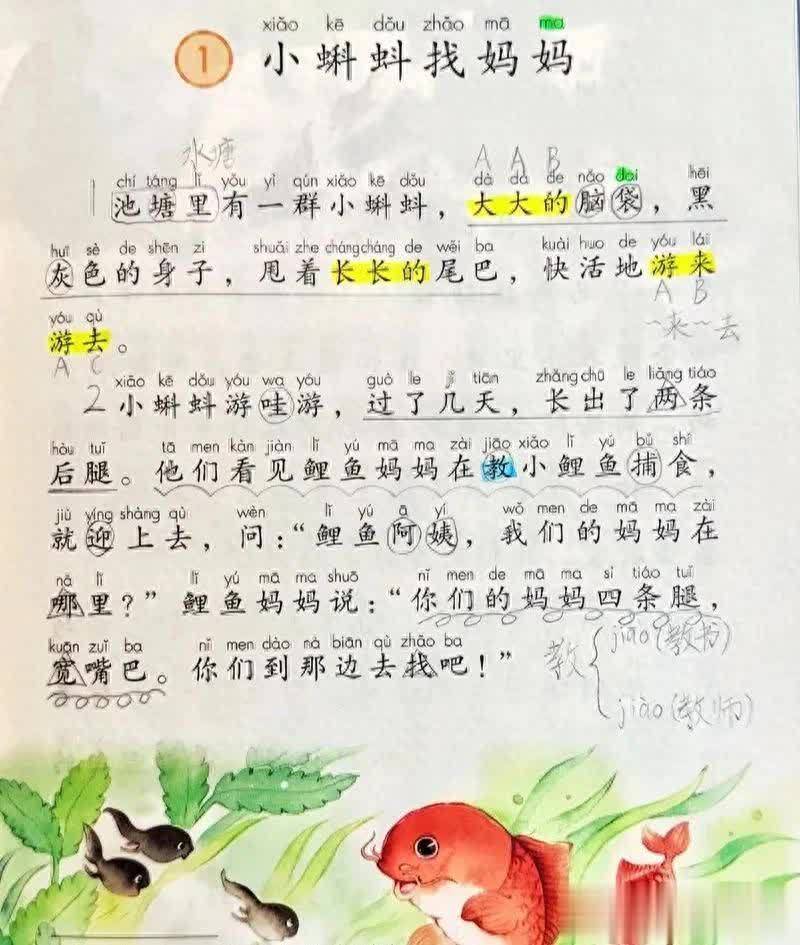 xiǎo kē dǒu zhǎo mā ma
1 小蝌蚪找妈妈
水塘 A A B
chí táng lǐ yǒu yì qún xiǎo kē dǒu dà dà de nǎo dai hēi
1 池塘里有一群小蝌蚪，大大的脑袋，黑
huī sè de shēn zi shuǎi zhe cháng cháng de wěi ba kuài huo de yóu lái
灰色的身子，甩着长长的尾巴，快活地游来
A B
yóu qù
游去。 ~来~去
A C
xiǎo kē dǒu yóu wa yóu guò le jǐ tiān zhǎng chū le liǎng tiáo
2 小蝌蚪游哇游，过了几天，长出了两条
hòu tuǐ tā men kàn jiàn lǐ yú mā ma zài jiāo xiǎo lǐ yú bǔ shí
后腿。他们看见鲤鱼妈妈在教小鲤鱼捕食，
jiù yíng shàng qù wèn lǐ yú ā yí wǒ men de mā ma zài
就迎上去，问：“鲤鱼阿姨，我们的妈妈在
nǎ lǐ lǐ yú mā ma shuō nǐ men de mā ma sì tiáo tuǐ
哪里？”鲤鱼妈妈说：“你们的妈妈四条腿，
kuān zuǐ ba nǐ men dào nà biān qù zhǎo ba
宽嘴巴。你们到那边去找吧！”
教 jiāo(教书)
jiào(教师)